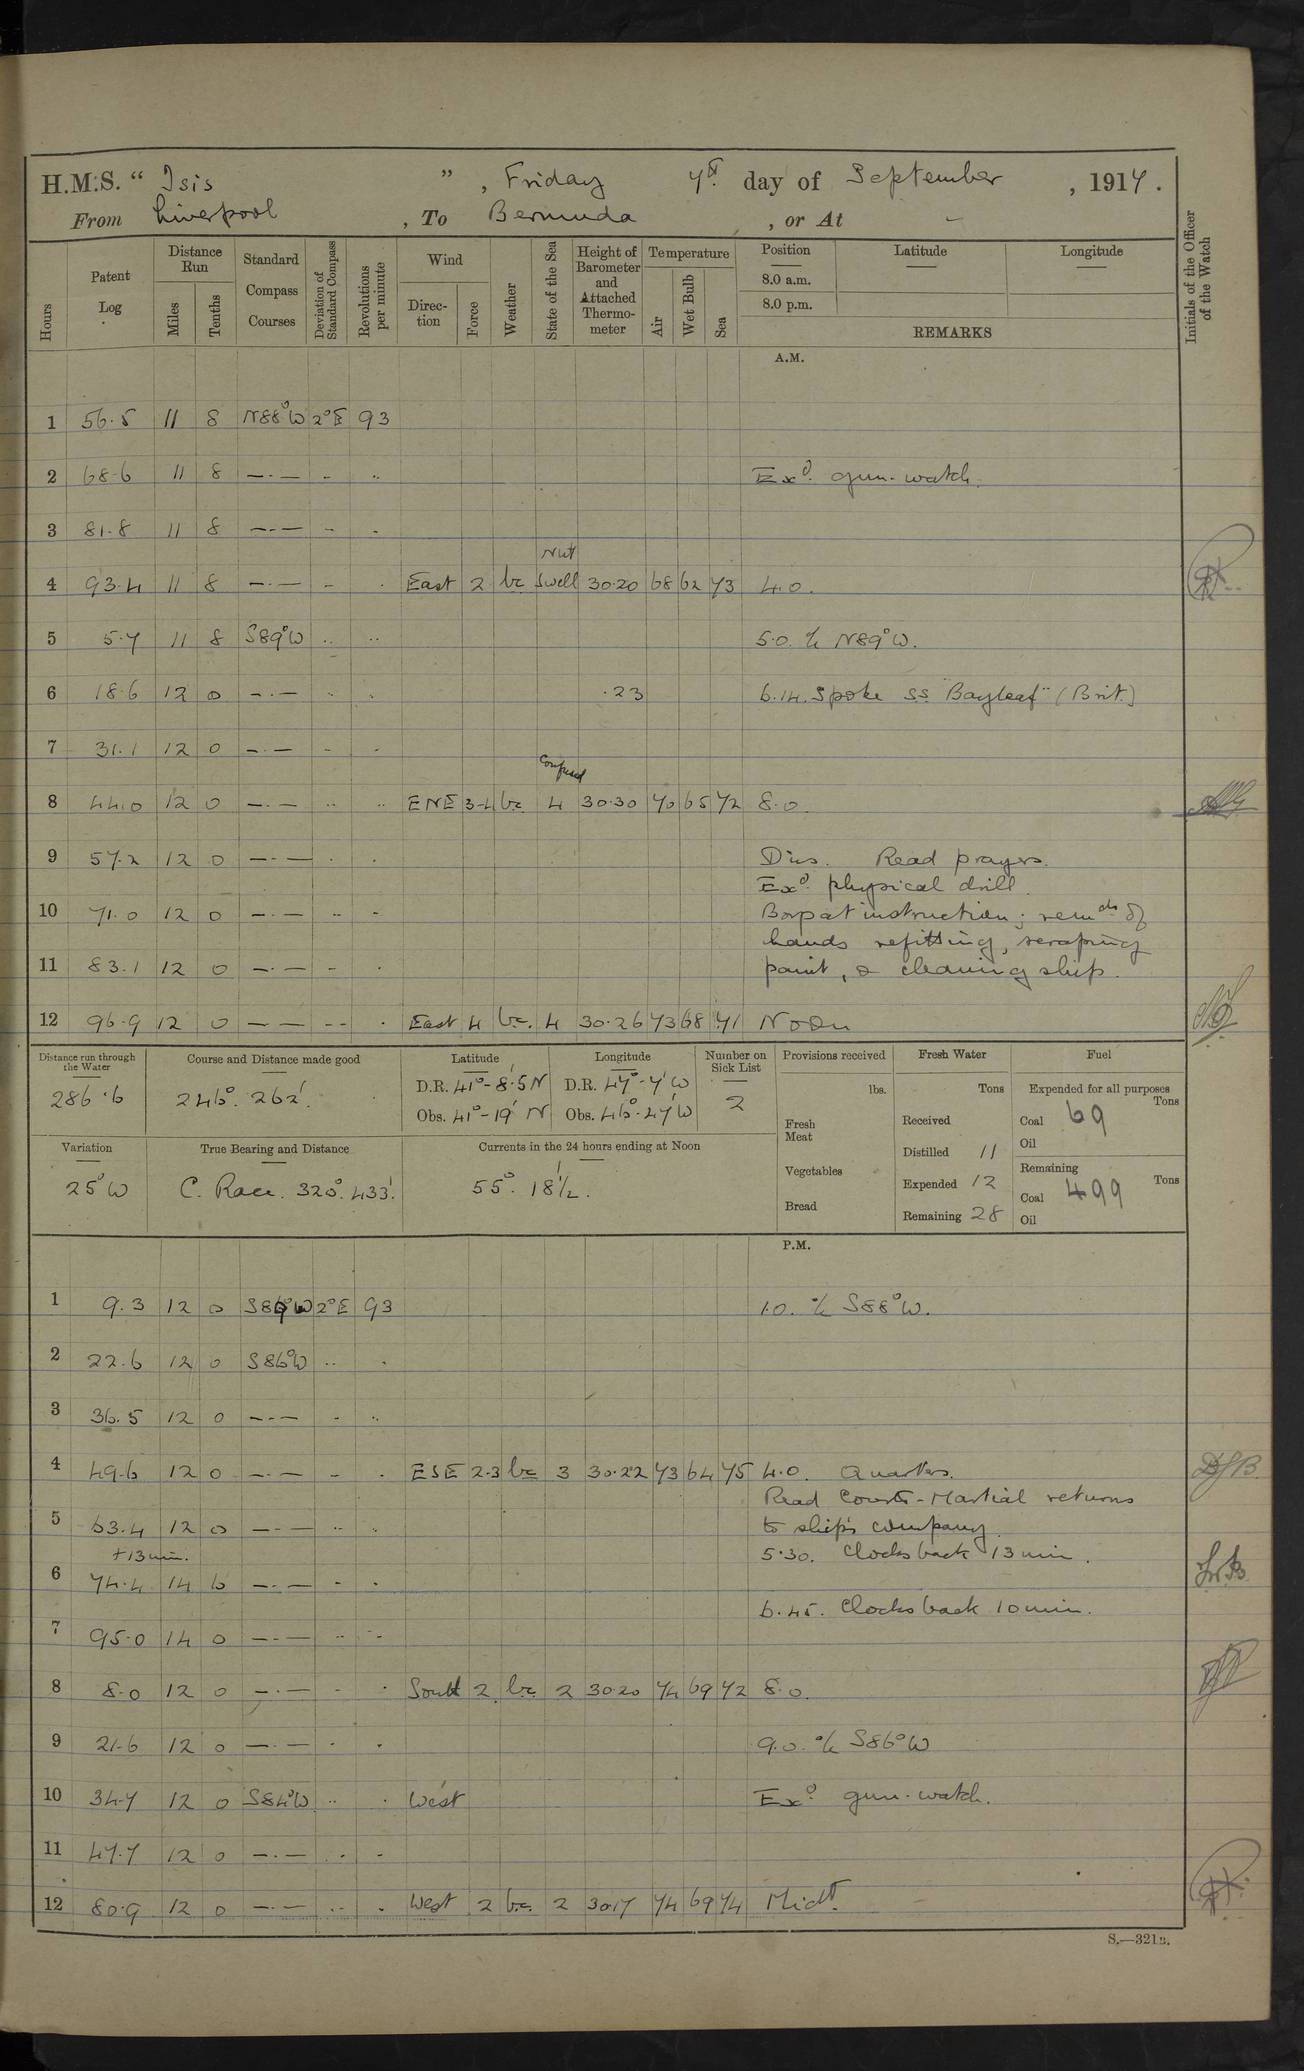 H.M.S. “ Isis ” , Friday 4th day of September , 1914 .
From Liverpool , To Bermuda , or At -
Hours
Patent Log
Distance Run
Miles
Tenths
Standard Compass Courses
Deviation of Standard Compass
Revolutions per minute
Wind
Direction
Force
Weather
State of the Sea
Height of Barometer and Attached Thermometer
Temperature
Air
Wet Bulb
Sea
Position
8.0 a.m.
8.0 p.m.
Latitude
Longitude
REMARKS
Initials of the Officer of the Watch
A.M.
1 56.5 11 8 N88°W 2°E 93
2 68.6 11 8 —.— - .. Exd. gun-watch.
3 81.8 11 8 —.— - -
4 93.4 11 8 —.— - . East 2 bc NW Swell 30.20 68 62 73 4.0.
5 5.7 11 8 S89°W .. .. 5.0. °/c N89°W.
6 18.6 12 0 —.— .. . .23 6.14. Spoke SS "Bayleaf" (Brit.)
7 31.1 12 0 —.— - -
8 44.0 12 0 —.— .. .. ENE 3-4 bc Confused 4 30.30 70 65 72 8.0.
9 57.2 12 0 —.— . . Divs. Read prayers.
Exd. physical drill.
10 71.0 12 0 —.— .. - Boys at instruction; remdr of
hands refitting, scraping
11 83.1 12 0 —.— - . paint, & cleaning ship.
12 96.9 12 0 — — -- . East 4 bc. 4 30.26 73 68 71 Noon
Distance run through the Water
286.6
Course and Distance made good
246°. 262'.
Latitude
D.R. 41°-8.5'N
Obs. 41°-19' N
Longitude
D.R. 47°-7'W
Obs. 46°-47'W
Number on Sick List
2
Provisions received
lbs.
Fresh Meat
Vegetables
Bread
Fresh Water
Tons
Received
Distilled 11
Expended 12
Remaining 28
Fuel
Expended for all purposes
Tons
Coal 69
Oil
Remaining
Tons
Coal 499
Oil
Variation
25°W
True Bearing and Distance
C. Race. 320°. 433'.
Currents in the 24 hours ending at Noon
55°. 18½'.
P.M.
1 9.3 12 0 2°E 93 1.0. °/c S88°W.
2 22.6 12 0 S86°W .. .
3 36.5 12 0 —.— - ..
4 49.6 12 0 —.— - . ESE 2.3 bc 3 30.22 73 64 75 4.0. Quarters. DJB
Read Court-Martial returns
5 63.4 12 0 —.— .. . to ship's company.
+13 min. 5.30. Clocks back 13 min.
6 74.4 14 6 —.— - -
6.45. Clocks back 10 min.
7 95.0 14 0 —.— .. ..
8 8.0 12 0 —.— - . South 2 bc 2 30.20 74 69 72 8.0.
9 21.6 12 0 —.— - . 9.0. °/c S86°W
10 34.7 12 0 S84°W .. . West Exd. gun-watch.
11 47.7 12 0 —.— . -
12 80.9 12 0 —.— .. . West 2 bc. 2 30.17 74 69 74 Midt.
S.—321a.